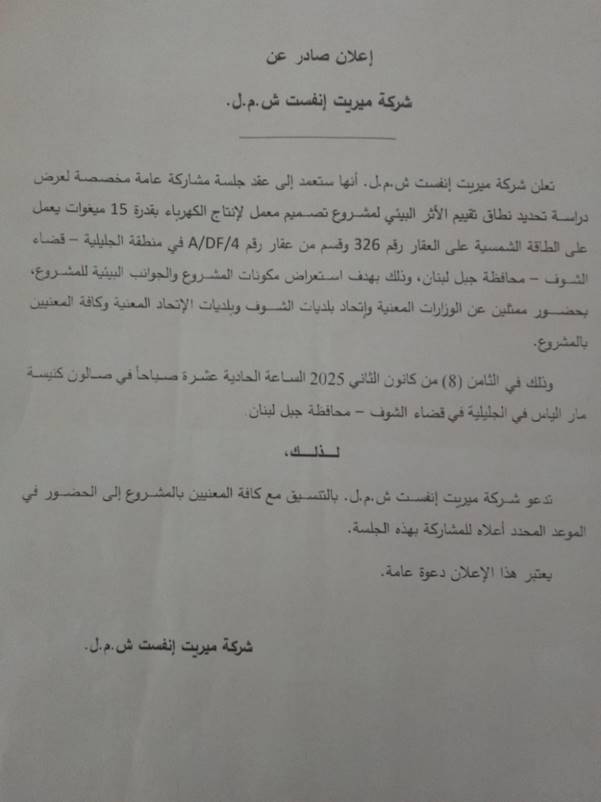 إعلان صادر عن
شركة ميريت إنفست ش.م.ل.
تعلن شركة ميريت إنفست ش.م.ل. أنها ستعمد إلى عقد جلسة مشاركة عامة مخصصة لعرض
دراسة تحديد نطاق تقييم الأثر البيئي لمشروع تصميم معمل لإنتاج الكهرباء بقدرة 15 ميغوات يعمل
على الطاقة الشمسية على العقار رقم 326 وقسم من عقار رقم A/DF/4 في منطقة الجليلية – قضاء
الشوف – محافظة جبل لبنان، وذلك بهدف استعراض مكونات المشروع والجوانب البيئية للمشروع،
بحضور ممثلين عن الوزارات المعنية وإتحاد بلديات الشوف وبلديات الإتحاد المعنية وكافة المعنيين
بالمشروع.
وذلك في الثامن (8) من كانون الثاني 2025 الساعة الحادية عشرة صباحاً في صالون كنيسة
مار الياس في الجليلية في قضاء الشوف – محافظة جبل لبنان.
لـذلـك،
تدعو شركة ميريت إنفست ش.م.ل. بالتنسيق مع كافة المعنيين بالمشروع إلى الحضور في
الموعد المحدد أعلاه للمشاركة بهذه الجلسة.
يعتبر هذا الإعلان دعوة عامة.
شركة ميريت إنفست ش.م.ل.